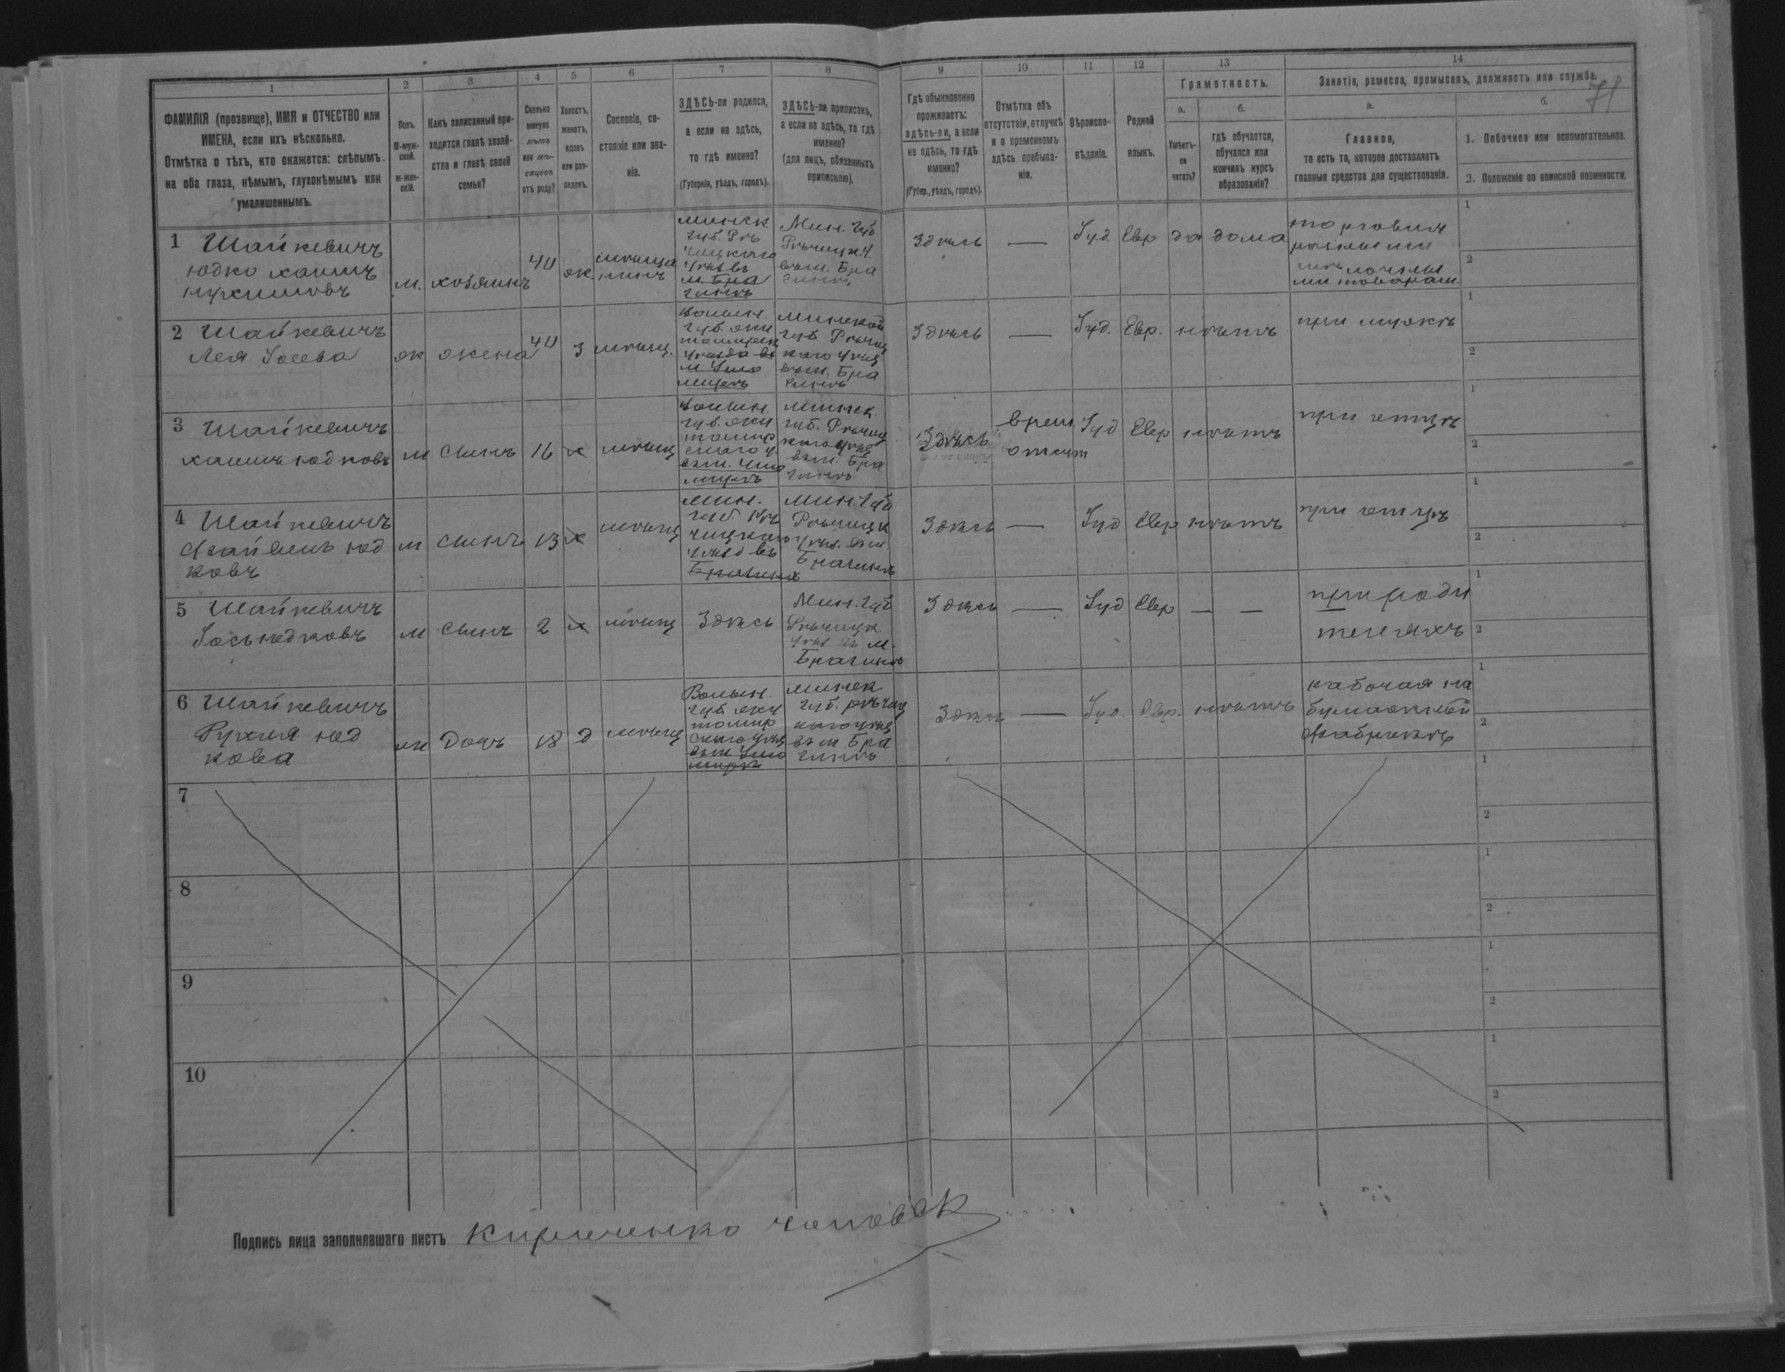 1
2
3
4
5
6
7
8
9
10
11
12
13
14
71
ФАМИЛІЯ (прозвище), ИМЯ и ОТЧЕСТВО или
ИМЕНА, если ихъ нѣсколько.
Отмѣтка о тѣхъ, кто окажется: слѣпымъ
на оба глаза, нѣмымъ, глухонѣмымъ или
умалишеннымъ.
Полъ.
М-муж-
ской.
ж-жен-
скій.
Какъ записанный при-
ходится главѣ хозяй-
ства и главѣ своей
семьи?
Сколько
минуло
лѣтъ
или мѣ-
сяцевъ
отъ роду?
Холостъ,
женатъ,
вдовъ
или раз-
веденъ.
Сословіе, со-
стояніе или зва-
ніе.
ЗДѢСЬ-ли родился,
а если не здѣсь,
то гдѣ именно?
(Губернія, уѣздъ, городъ).
ЗДѢСЬ-ли приписанъ,
а если не здѣсь, то гдѣ
именно?
(для лицъ, обязанныхъ
припискою).
Гдѣ обыкновенно
проживаетъ:
здѣсь-ли, а если
не здѣсь, то гдѣ
именно?
(Губер., уѣздъ, городъ).
Отмѣтка объ
отсутствіи, отлучкѣ
и о временномъ
здѣсь пребыва-
ніи.
Вѣроиспо-
вѣданіе.
Родной
языкъ.
Грамотность.
а.
Умѣетъ-
ли
читать?
б.
гдѣ обучается,
обучался или
кончилъ курсъ
образованія?
Занятіе, ремесло, промыселъ, должность или служба.
а.
Главное,
то есть то, которое доставляетъ
главныя средства для существованія.
б.
1. Побочное или вспомогательное.
2. Положеніе по воинской повинности.
1 Шайкевичъ
Юдко Хаимъ
Нухимовъ
м. хозяинъ 40 ж. мѣща
нинъ
Минск
губ. Рѣ
чицкаго
уѣз въ
м Бра
гинѣ
Мин. губ
Рѣчицк у.
въ м. Бра
гинѣ
Здѣсь — Іуд. Евр да дома
торговля
товарам
1
2
2 Шайкевичъ
Лея Іосева
ж жена 40 з мѣщ.
Волын.
губ. Жи
томирск
уѣзда въ
м Ушо
мирѣ
Минской
губ Рѣчиц
каго уѣз
въ м. Бра
гинѣ
Здѣсь — Іуд. Евр. нѣтъ
при мужѣ
1
2
3 Шайкевичъ
Хаимъ Юдковъ
м сынъ 16 х мѣщ
Волын.
губ. Жи
томир
скаго у.
въ м. Ушо
мирѣ
Минск.
губ. Рѣчиц
каго уѣз
въ м. Бра
гинѣ
Здѣсь врем
отсут
Іуд Евр нѣтъ
при отцѣ
1
2
4 Шайкевичъ
Файвель Юд
ковъ
м сынъ 13 х мѣщ
Мин.
губ. Рѣ
чицкаго
уѣзд въ
Брагинѣ
Мин губ
Рѣчицк
уѣз. въ м
Брагинѣ
Здѣсь — Іуд Евр нѣтъ
при отцѣ
1
2
5 Шайкевичъ
Іось Юдковъ
м сынъ 2 х мѣщ Здѣсь
Мин. губ
Рѣчицк
уѣз въ м.
Брагинѣ
Здѣсь — Іуд Евр — —
при роди
теляхъ
1
2
6 Шайкевичъ
Рухля Юд
кова
ж дочь 18 д мѣщ
Волын.
губ Жи
томир
скаго уѣз
въ м Ушо
мирѣ
Минск
губ. Рѣчиц
каго уѣз
въ м Бра
гинѣ
Здѣсь — Іуд. Евр. нѣтъ
рабочая на
бумажной
фабрикѣ
1
2
7
1
2
8
1
2
9
1
2
10
1
2
Подпись лица заполнявшаго листъ Кириченко